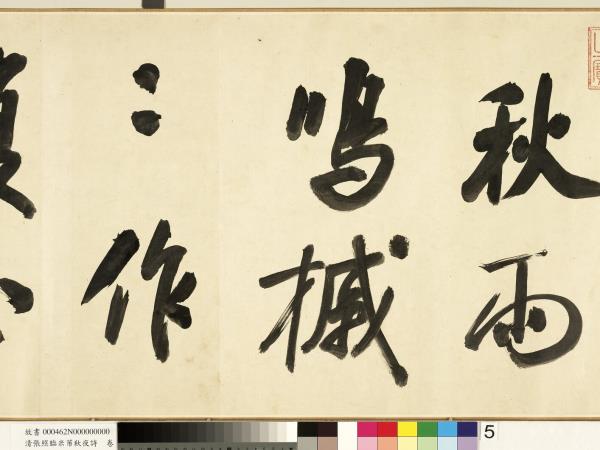 秋雨
鳴槭
〻作
故書 000462N000000000
清張照臨米芾秋夜詩 卷
5